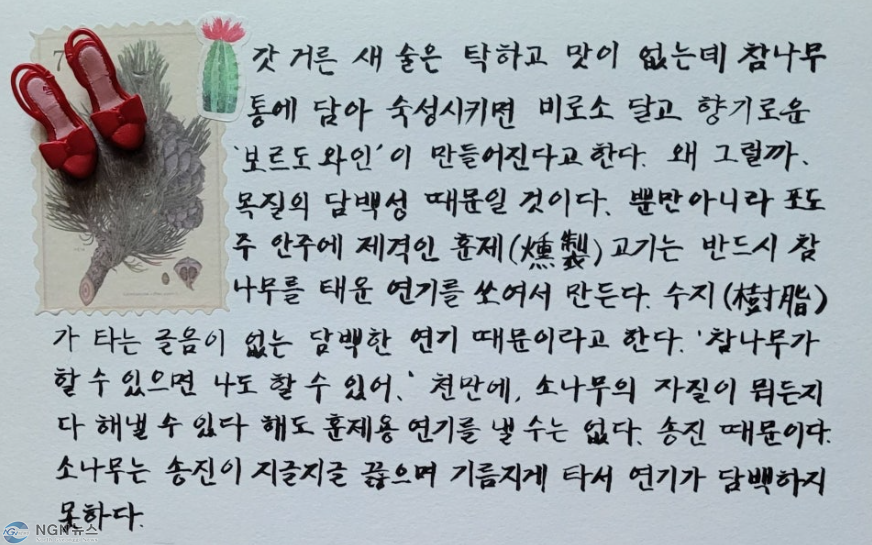 갓 거른 새 술은 탁하고 맛이 없는데 참나무
통에 담아 숙성시키면 비로소 달고 향기로운
'보르도 와인'이 만들어진다고 한다. 왜 그럴까.
목질의 담백성 때문일 것이다. 뿐만아니라 포도
주 안주에 제격인 훈제(燻製)고기는 반드시 참
나무를 태운 연기를 쏘여서 만든다. 수지(樹脂)
가 타는 글음이 없는 담백한 연기 때문이라고 한다. '참나무가
할 수 있으면 나도 할 수 있어.' 천만에, 소나무의 자질이 뭐든지
다 해낼 수 있다 해도 훈제용 연기를 낼 수는 없다. 송진 때문이다.
소나무는 송진이 지글지글 끓으며 기름지게 타서 연기가 담백하지
못하다.
NGN뉴스